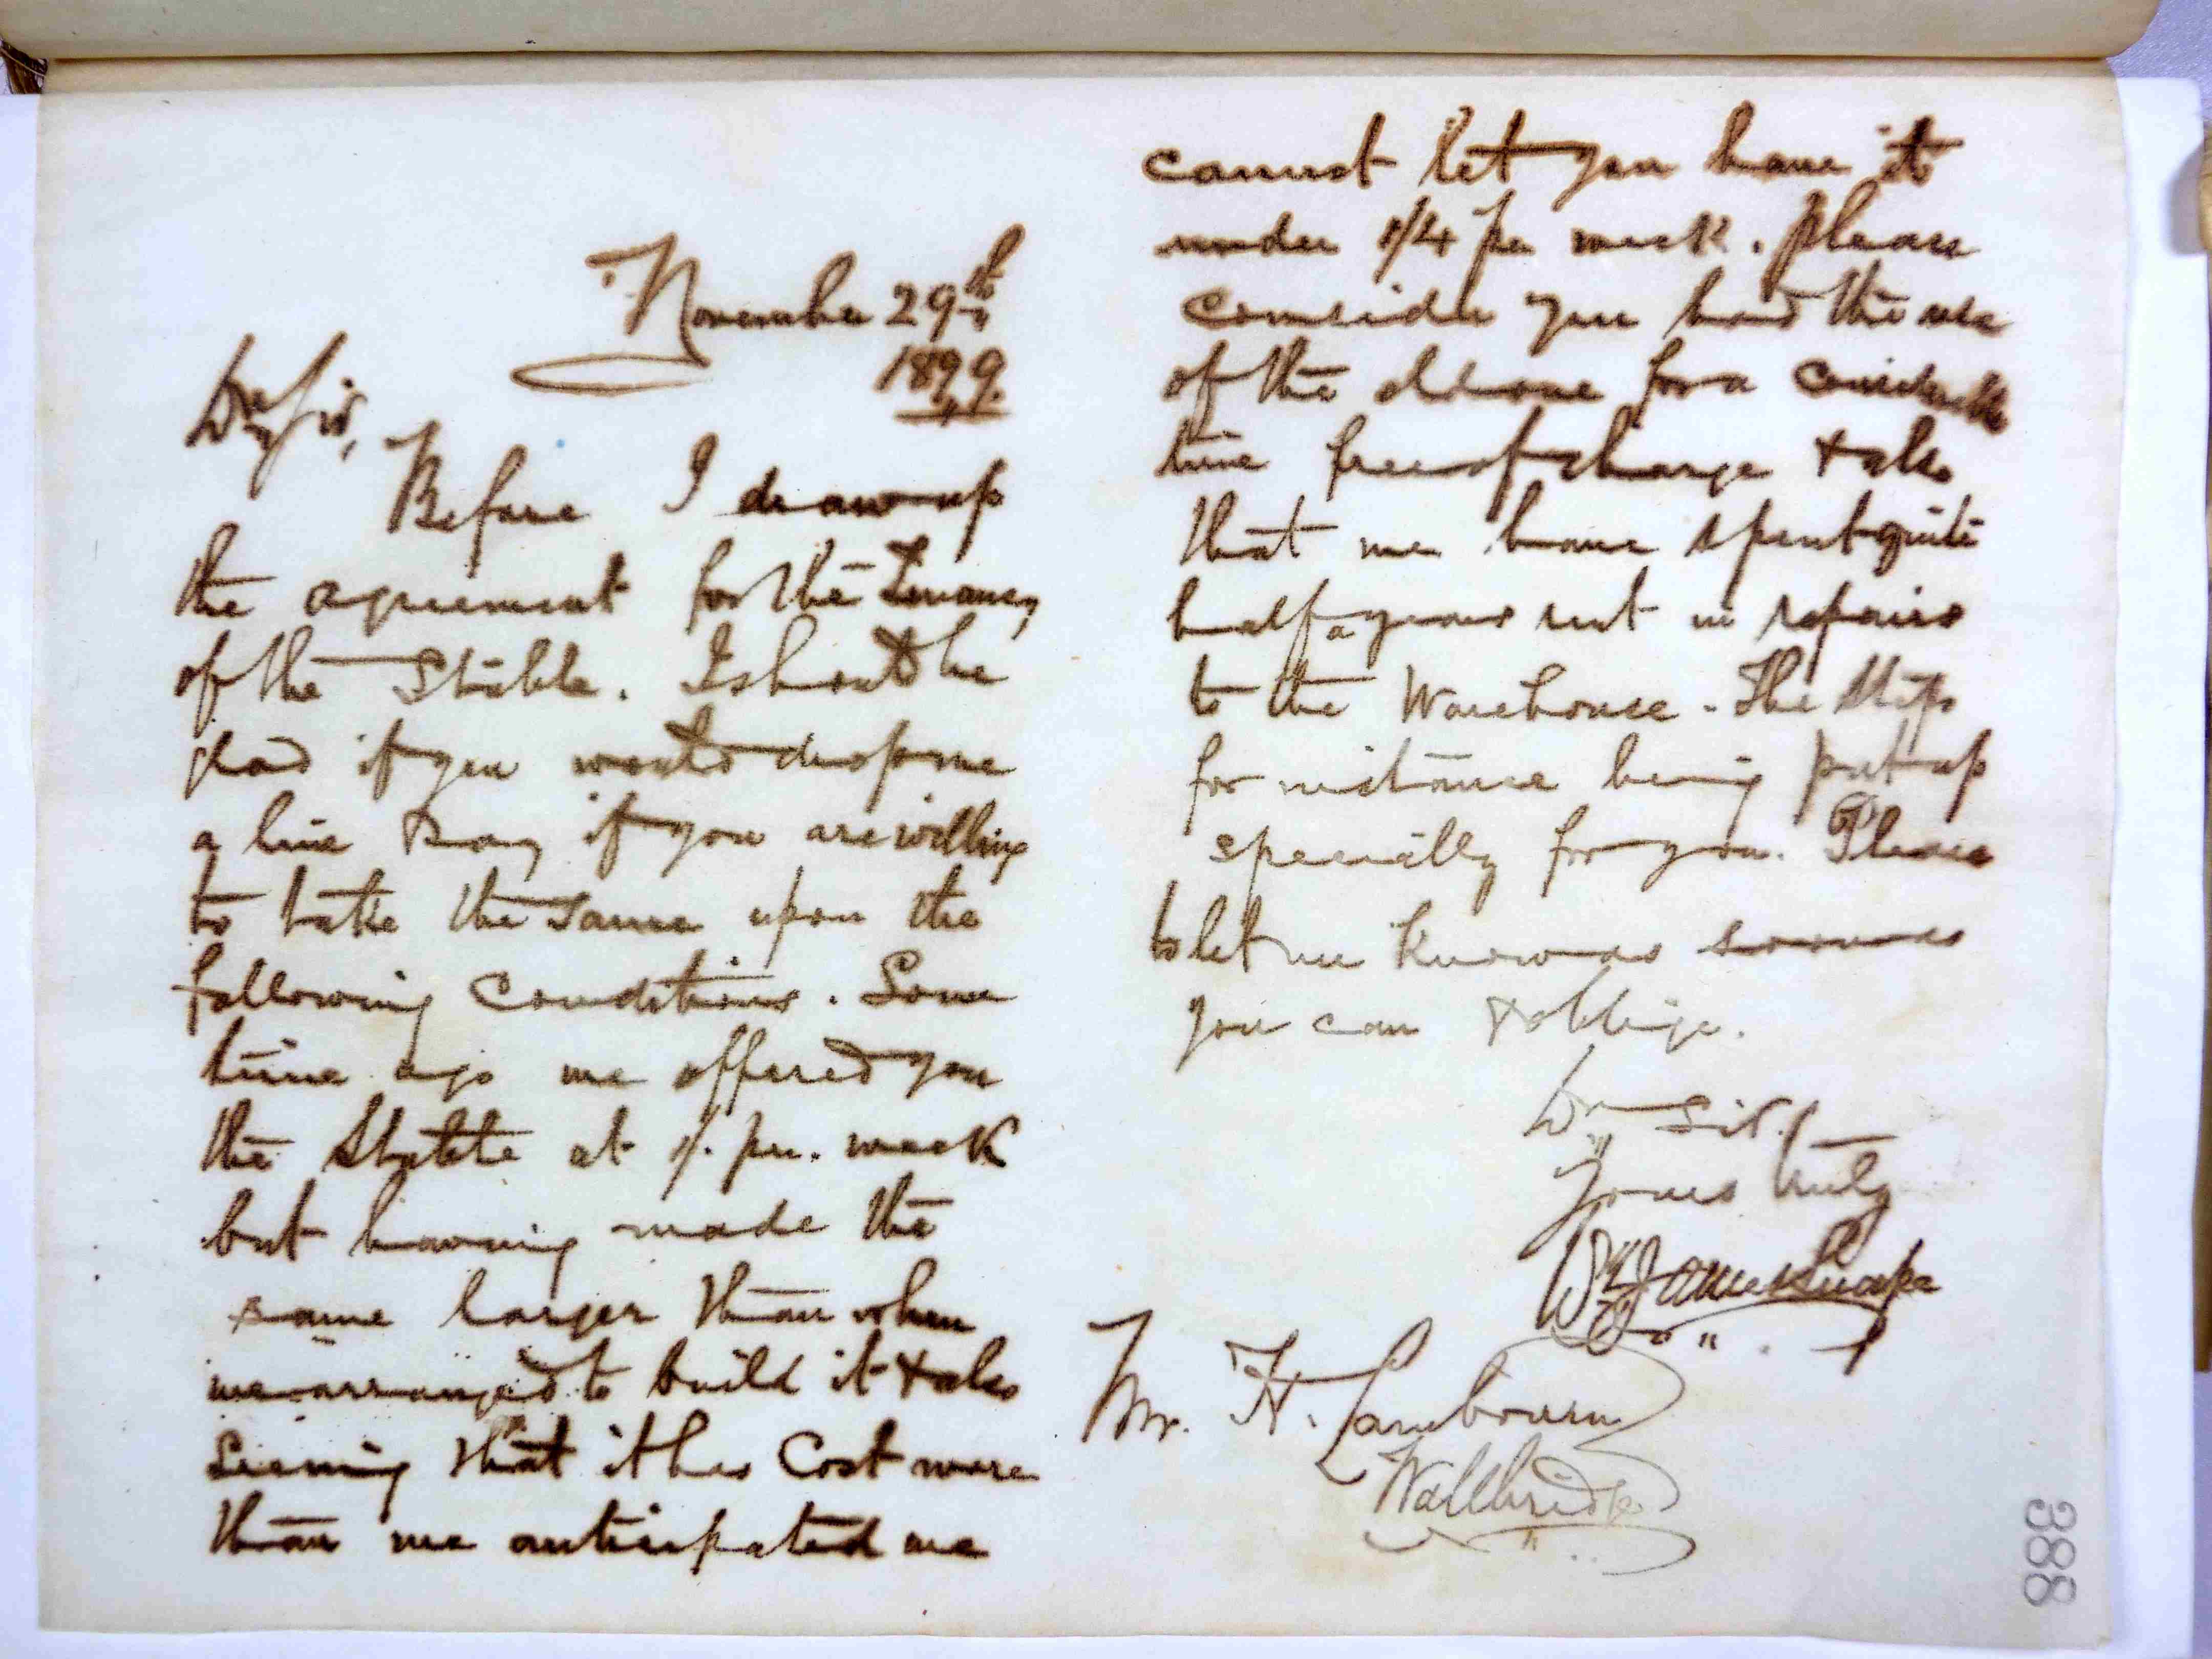 November 29th
1899.
Dr Sir,
Before I draw up
the agreement for the Tenancy
of the Stable. I should be
glad if you would drop me
a line & say if you are willing
to take the same upon the
following Conditions. Some
time ago we offered you
the Stable at 1/. per. week
but having made the
same larger than when
we arranged to build it & also
Seeing that it has Cost more
than we anticipated we
cannot let you have it
under 1/4 per week. Please
consider you had the use
of the old one for a considerable
time free of charge & also
that we have spent quite
half a years rent in repairs
to the Warehouse. The Steps
for instance being put up
specially for you. Please
to let me know as soon as
you can & oblige.
Dr Sir.
Yours truly
Wm James
Mr. H. Lambourn
Wallbridge
388